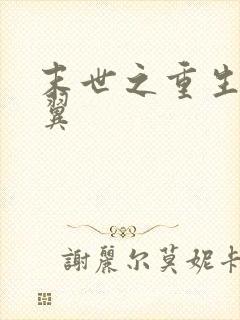 末世之重生
翼
謝麗尔莫妮卡